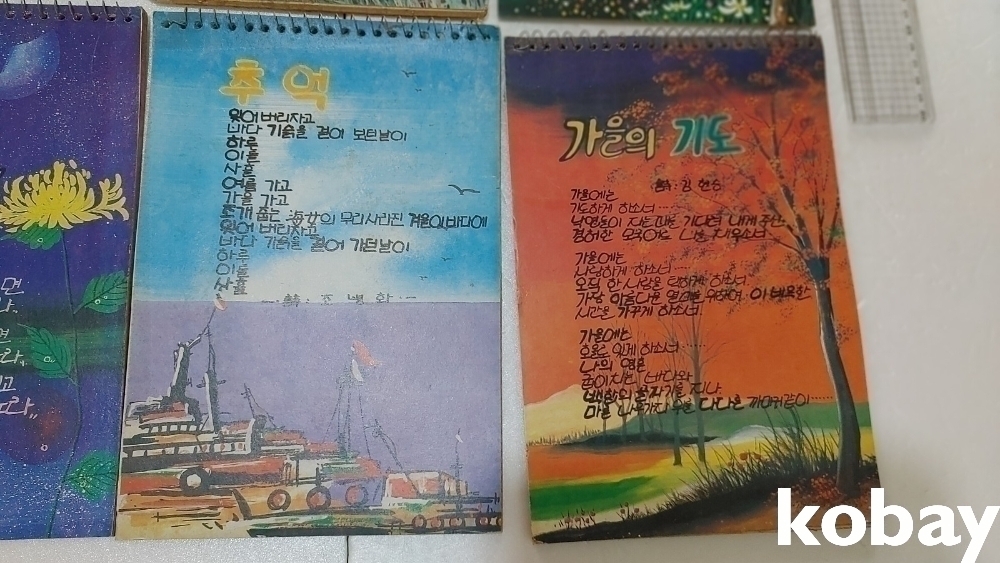 면
나.
면
라..
고
노라,,
추억
잊어버리자고
바다 기슭을 걸어 보던날이
하루
이틀
사흘
여름 가고
가을 가고
조개 줍는 海女의 무리사라진 겨울이바다에
잊어버리자고
바다 기슭을 걸어 가던날이
하루
이틀
사흘
詩. 조 병 화
가을의 기도
詩. 김 현승
가을에는
기도하게 하소서……
낙엽들이 지는때를 기다려 내게 주신
겸허한 모국어로 나를 채우소서.
가을에는
사랑하게 하소서……
오직 한 사람을 택하게 하소서.
가장 아름다운 열매를 위하여 이 비옥한
시간을 가꾸게 하소서.
가을에는
호올로 있게 하소서……
나의 영혼
굽이치는 바다와
백합의 골짜기를 지나,
마른 나무가지 위에 다다른 까마귀같이……
kobay